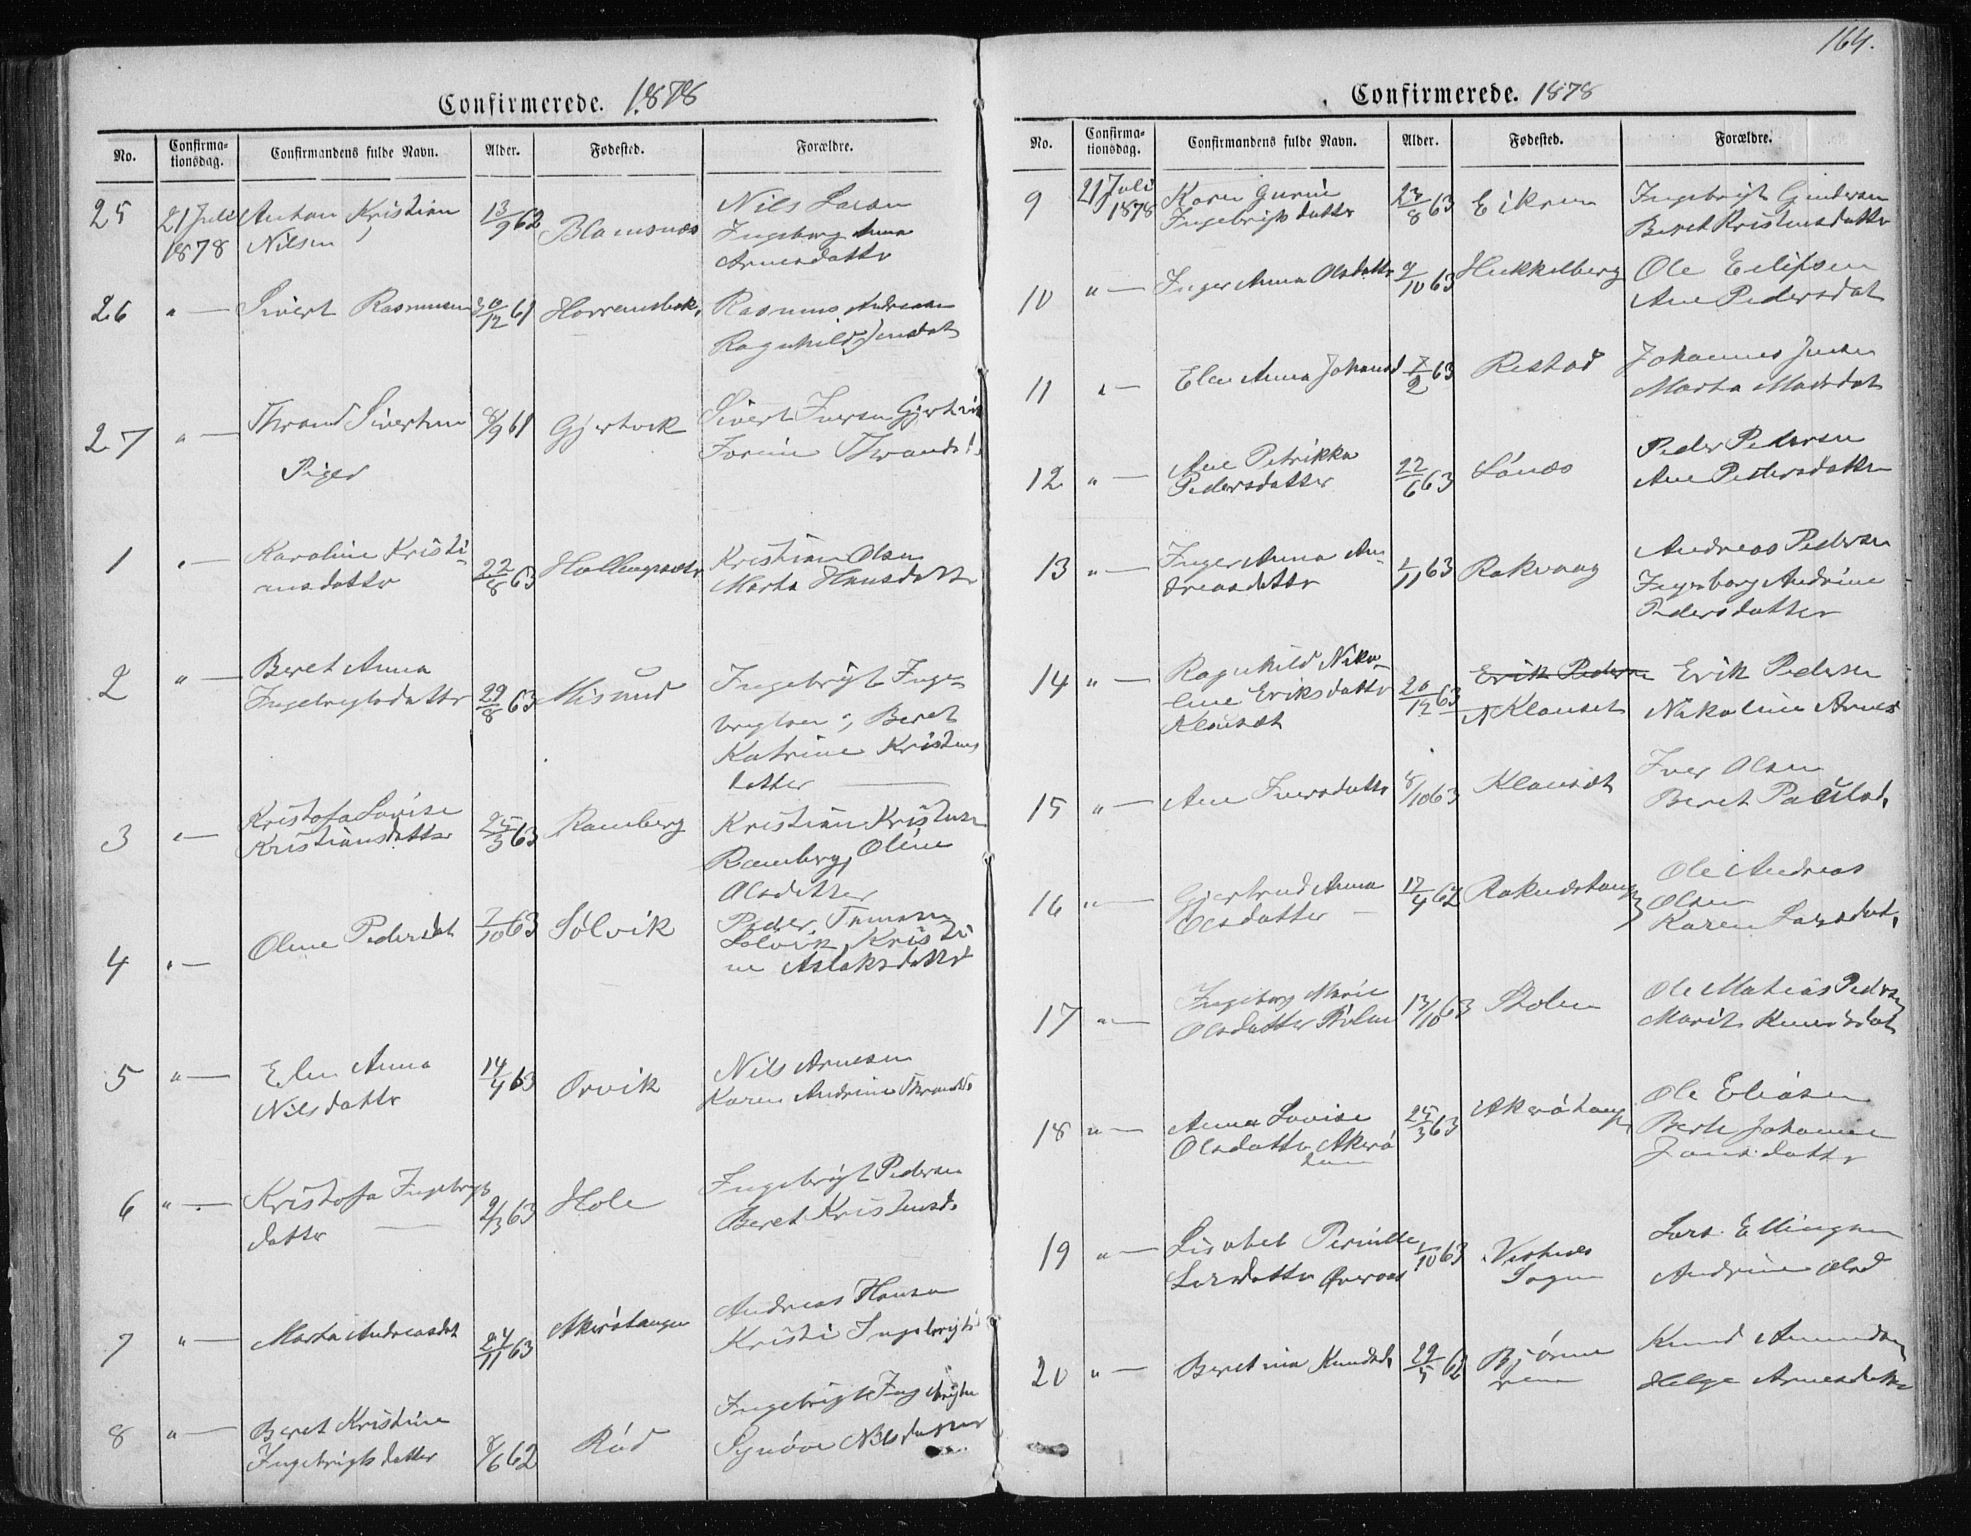 Confirmerede. 1878
No. Confirmationsdag. Confirmandens fulde Navn. Alder. Fødested. Forældre.
25 21 Juli 1878 Anton Kristian Nilsen 13/9 62 Nils
Ingeborg Anna
Arnesdatter
26 " — Sivert Rasmussen 30/12 61 Rasmus Andreasen
Ragnhild Jensdat
27 " — Thrond Sivertsen 8/9 61 Gjertvik Sivert Iversen Gjertvik
Thronds
Piger
1 " — Karoline Kristi-
ansdatter 22/8 63 Kristian Olsen
Marta Hansdatter
2 " — Beret Anna
Ingebrigtsdatter 29/8 63 Misund Ingebrigt Inge-
brigtsen; Beret
Katrine Kristens
datter —
3 " — Kristofa Lovise
Kristiansdatter 25/3 63 Ramberg Kristian Kristensen
Ramberg, Oline
Olsdatter
4 " — Oline Pedersdat 7/10 63 Solvik Peder
Solvik, Kristi
ne Aslaksdatter
5 " — Elen Anna
Nilsdatter 14/4 63 Orvik Nils Arnesen
Karen Andrine Thronds
6 " — Kristofa Ingebrigts
datter — 2/3 63 Hole Ingebrigt Pedersen
Beret Kristensd.
7 " — Marta Andreasdat 24/11 63 Akerøtangen Andreas Hansen
Kristi Ingebrigts
8 " — Beret Kristine
Ingebrigtsdatter 8/6 62 Rød Ingebrigt Ingebrigtsen
Synøve Nilsdatter
164.
Confirmerede. 1878
No. Confirmationsdag. Confirmandens fulde Navn. Alder. Fødested. Forældre.
9 21 Juli 1878 Karen Gurine
Ingebrigtsdatter 23/8 63 Eikrem Ingebrigt Gundersen
Beret Kristensdatter
10 " — Inger Anna Olsdatter 9/10 63 Hukkelberg Ole Eilifsen
Ane Pedersdat
11 " — Elen Anna Johansd 7/2 63 Restad Johannes Jensen
Marta Madsdat
12 " — Ane Petrikka
Pedersdatter 22/6 63 Sønæs Peder Pedersen
Ane Pedersdatter
13 " — Inger Anna An-
dreasdatter 1/11 63 Rakvaag Andreas Pedersen
Ingeborg Andrine
Pedersdatter
14 " — Ragnhild Niko-
line Eriksdatter
Klauset 20/12 63 Erik Pedersen
N Klauset Erik Pedersen
Nikoline Arnes
15 " — Ane Iversdatter 8/10 63 Klauset Iver Olsen
Beret
16 " — Gjertrud Anna
Olsdatter — 17/4 62 Ole Andreas
Olsen
Karen Larsdat.
17 " — Ingeborg Marie
Olsdatter Stolen 13/10 63 Stolen Ole Matias Pedersen
Marit Knudsdat
18 " — Anna Lovise
Olsdatter Akerø
tan 25/3 63 Akerøtangen Ole Eliasen
Berte Johanne
Jonsdatter
19 " — Lisabet Pernille
Larsdatter Øveraas 1/10 63 Vestnes
Sogn Lars Ellingsen
Andrine Olsd
20 " — Beretina Knudsd. 29/5 62 Bjørne
rem Knud Amundsen
Helge Arnesdatter